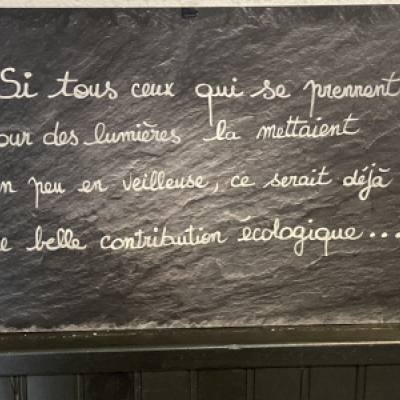 Si tous ceux qui se prennent
our des lumières la mettaient
n peu en veilleuse, ce serait déjà
e belle contribution écologique...